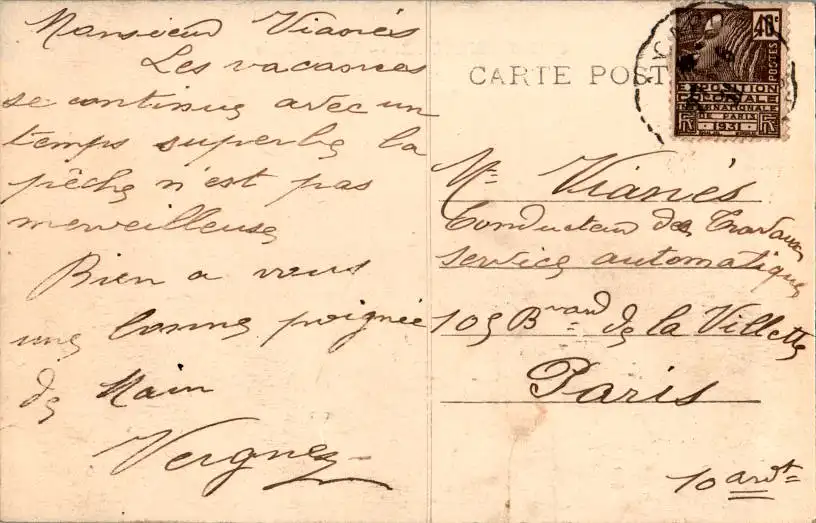 Monsieur Vianés
Les vacances
se continue avec un
temps superbe la
pêche n'est pas
merveilleuse
Bien a vous
une bonne poignée
de Main
Vergnes
CARTE POST
40c
POSTES
EXPOSITION
COLONIALE
INTERNATIONALE
DE PARIS
1931
Mr Vianés
Conducteur des Travaux
Service automatique
105 Bvard de la Villette
Paris
10 ardt